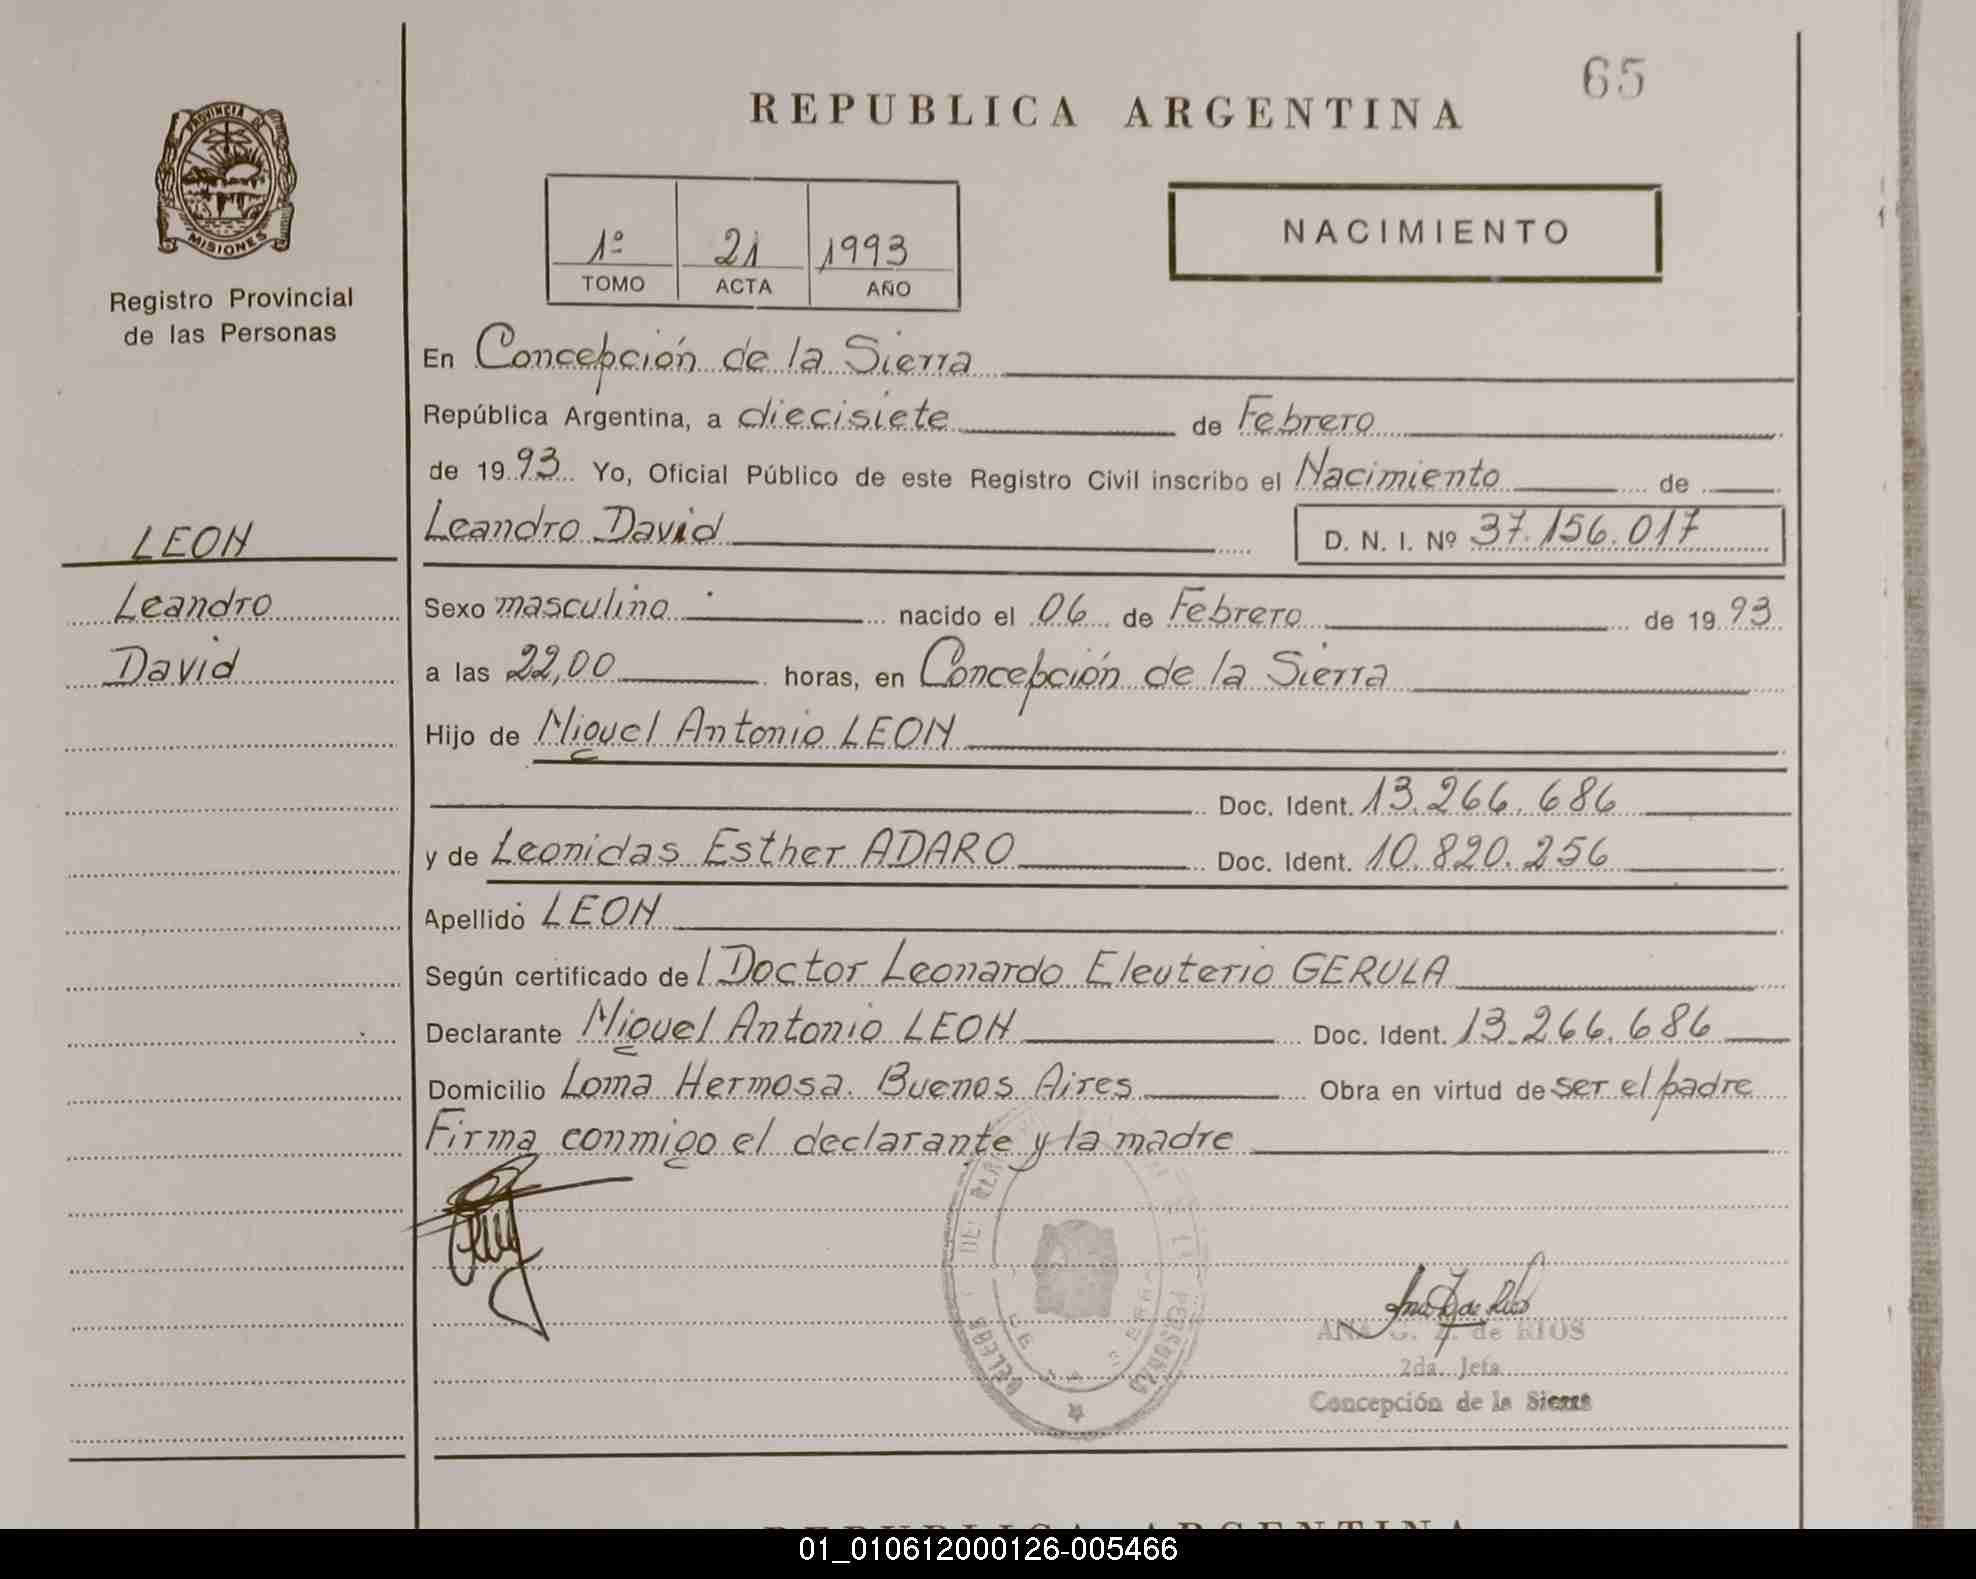 65
REPUBLICA ARGENTINA
PROVINCIA DE
MISIONES
Registro Provincial
de las Personas
1º 21 1993
TOMO ACTA AÑO
NACIMIENTO
En Concepción de la Sierra
República Argentina, a diecisiete de Febrero
de 1993 Yo, Oficial Público de este Registro Civil inscribo el Nacimiento de
Leandro David D. N. I. Nº 37.156.017
LEON
Leandro
David
Sexo masculino nacido el 06 de Febrero de 1993
a las 22,00 horas, en Concepción de la Sierra
Hijo de Miguel Antonio LEON
Doc. Ident. 13.266.686
y de Leonidas Esther ADARO Doc. Ident. 10.820.256
Apellido LEON
Según certificado del Doctor Leonardo Eleuterio GERULA
Declarante Miguel Antonio LEON Doc. Ident. 13.266.686
Domicilio Loma Hermosa. Buenos Aires Obra en virtud de ser el padre
Firma conmigo el declarante y la madre
ANA G. Z. de RIOS
2da. Jefa
Concepción de la Sierra
REPUBLICA ARGENTINA
01_010612000126-005466